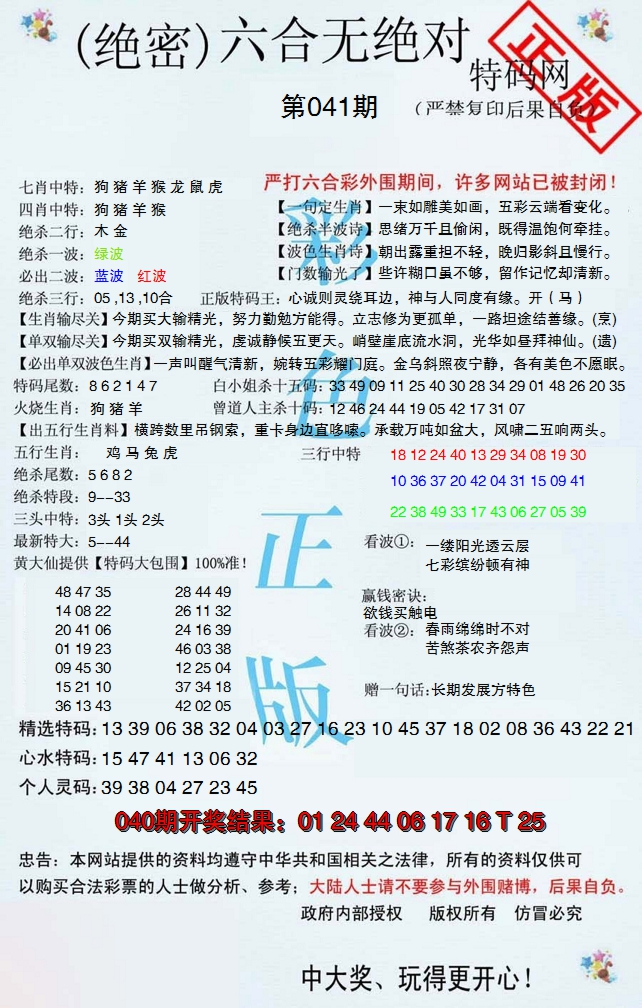 (绝密)六合无绝对
特码网
正版
第041期
（严禁复印后果自负）
七肖中特: 狗 猪 羊 猴 龙 鼠 虎
严打六合彩外围期间，许多网站已被封闭！
四肖中特: 狗 猪 羊 猴
【一句定生肖】一束如雕美如画，五彩云端看变化。
绝杀二行: 木 金
【绝杀半波诗】思绪万千且偷闲，既得温饱何牵挂。
绝杀一波: 绿波
【波色生肖诗】朝出露重担不轻，晚归影斜且慢行。
必出二波: 蓝波 红波
【门数输光了】些许糊口虽不够，留作记忆却清新。
绝杀三行: 05 ,13 ,10合 正版特码王：心诚则灵绕耳边，神与人同度有缘。开（马）
【生肖输尽关】今期买大输精光，努力勤勉方能得。立志修为更孤单，一路坦途结善缘。(烹)
【单双输尽关】今期买双输精光，虔诚静候五更天。峭壁崖底流水洞，光华如昼拜神仙。(遗)
【必出单双波色生肖】一声叫醒气清新，婉转五彩耀门庭。金乌斜照夜宁静，各有美色不愿眠。
特码尾数: 8 6 2 1 4 7 白小姐杀十五码: 33 49 09 11 25 40 30 28 34 29 01 48 26 20 35
火烧生肖: 狗 猪 羊 曾道人主杀十码: 12 46 24 44 19 05 42 17 31 07
【出五行生肖料】横跨数里吊钢索，重卡身边直哆嗦。承载万吨如盆大，风啸二五响两头。
五行生肖: 鸡 马 兔 虎 三行中特 18 12 24 40 13 29 34 08 19 30
绝杀尾数: 5 6 8 2
10 36 37 20 42 04 31 15 09 41
绝杀特段: 9--33
22 38 49 33 17 43 06 27 05 39
三头中特: 3头 1头 2头
最新特大: 5--44
看波①: 一缕阳光透云层
七彩缤纷顿有神
黄大仙提供【特码大包围】100%准!
48 47 35 28 44 49
14 08 22 26 11 32
20 41 06 24 16 39
01 19 23 46 03 38
09 45 30 12 25 04
15 21 10 37 34 18
36 13 43 42 02 05
赢钱密诀:
欲钱买触电
看波②: 春雨绵绵时不对
苦煞茶农齐怨声
赠一句话:长期发展方特色
彩色正版
精选特码: 13 39 06 38 32 04 03 27 16 23 10 45 37 18 02 08 36 43 22 21
心水特码: 15 47 41 13 06 32
个人灵码: 39 38 04 27 23 45
040期开奖结果：01 24 44 06 17 16 T 25
忠告：本网站提供的资料均遵守中华共和国相关之法律，所有的资料仅供可
以购买合法彩票的人士做分析、参考；大陆人士请不要参与外围赌博，后果自负。
政府内部授权 版权所有 仿冒必究
中大奖、玩得更开心！